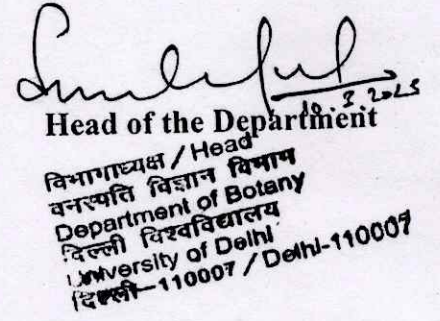 10.3.2025
Head of the Department
विभागाध्यक्ष / Head
वनस्पति विज्ञान विभाग
Department of Botany
दिल्ली विश्वविद्यालय
University of Delhi
दिल्ली-110007 / Delhi-110007